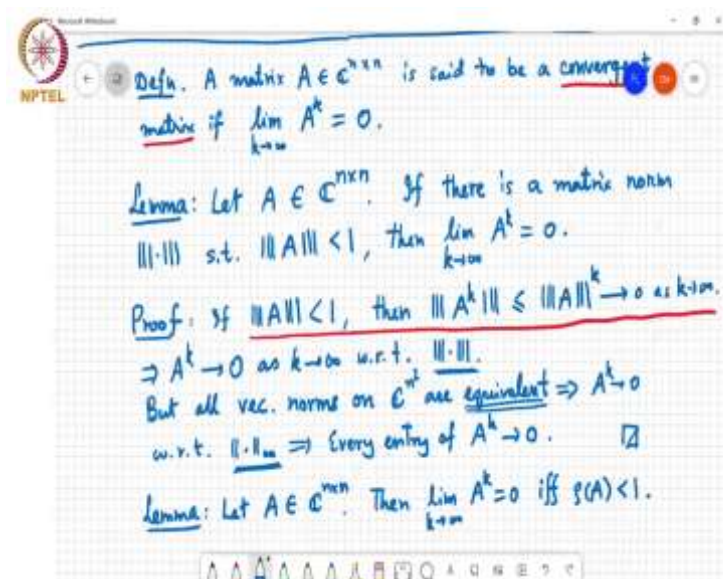 NPTEL
Defn. A matrix A ∈ ℂ^{n×n} is said to be a convergent
matrix if lim_{k→∞} A^k = 0.
Lemma: Let A ∈ ℂ^{n×n}. If there is a matrix norm
|||·||| s.t. |||A||| < 1, then lim_{k→∞} A^k = 0.
Proof: If |||A||| < 1, then |||A^k||| ⩽ |||A|||^k → 0 as k→∞.
⇒ A^k → 0 as k→∞ w.r.t. |||·|||.
But all vec. norms on ℂ^{n²} are equivalent ⇒ A^k → 0
w.r.t. ||·||_∞ ⇒ Every entry of A^k → 0.
Lemma: Let A ∈ ℂ^{n×n}. Then lim_{k→∞} A^k = 0 iff ρ(A) < 1.